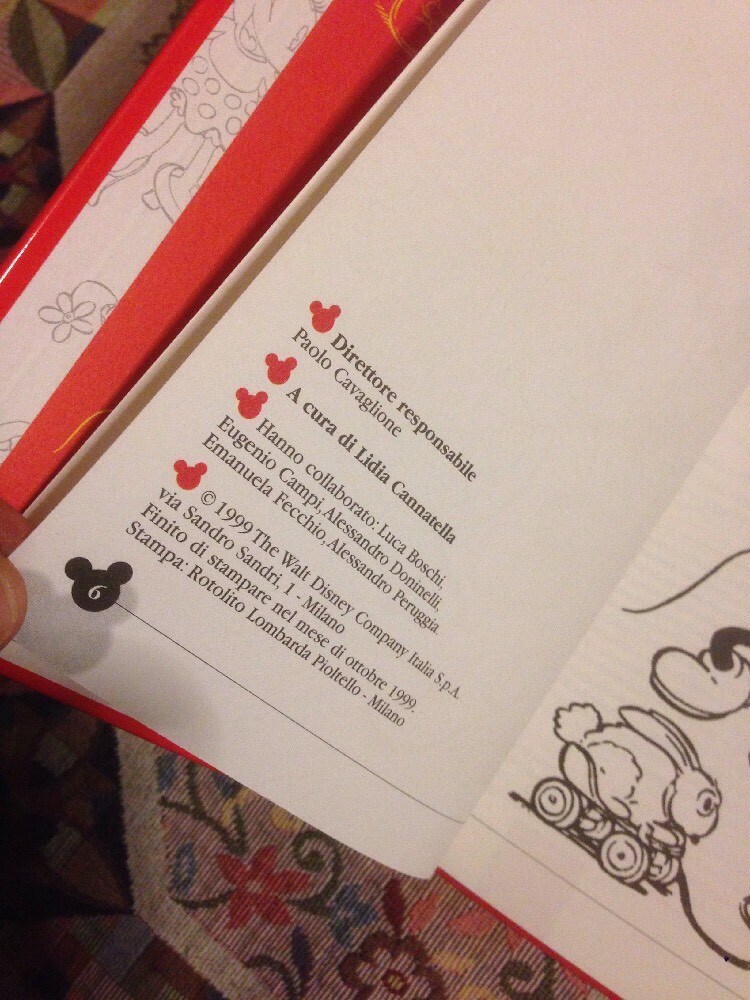 Direttore responsabile
Paolo Cavaglione
A cura di Lidia Cannatella
Hanno collaborato: Luca Boschi,
Eugenio Campi, Alessandro Doninelli,
Emanuela Fecchio, Alessandro Peruggia.
© 1999 The Walt Disney Company Italia S.p.A.
via Sandro Sandri, 1 - Milano
Finito di stampare nel mese di ottobre 1999.
Stampa: Rotolito Lombarda Pioltello - Milano
6